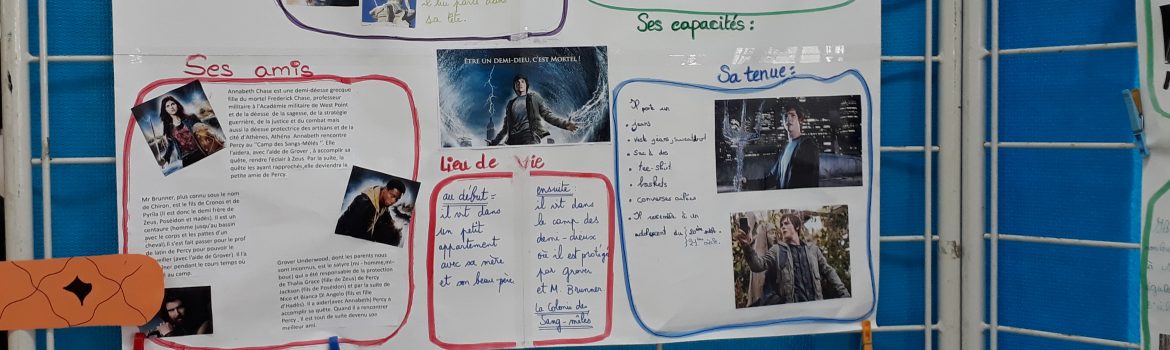 il lui parle dans
sa tête.
Ses capacités :
Ses amis
Annabeth Chase est une demi-déesse grecque
fille du mortel Frederick Chase, professeur
militaire à l'Académie militaire de West Point
et de la déesse de la sagesse, de la stratégie
guerrière, de la justice et du combat mais
aussi la déesse protectrice des artisans et de la
cité d'Athènes, Athéna. Annabeth rencontre
Percy au "Camp des Sangs-Mêlés ". Elle
l'aidera, avec l'aide de Grover , à accomplir sa
quête, rendre l'éclair à Zeus. Par la suite, la
quête les ayant rapprochés, elle deviendra la
petite amie de Percy.
Mr Brunner, plus connu sous le nom
de Chiron, est le fils de Cronos et de
Pyrila (il est donc le demi frère de
Zeus, Poséidon et Hadès). Il est un
centaure (homme jusqu'au bassin
avec le corps et les pattes d'un
cheval). Il s'est fait passer pour le prof
de latin de Percy pour pouvoir le
(avec l'aide de Grover). Il l'a
pendant le cours temps où
au camp.
Grover Underwood, dont les parents nous
sont inconnus, est le satyre (mi - homme,mi-
bouc) qui a été responsable de la protection
de Thalia Grace (fille de Zeus) de Percy
Jackson (fils de Poséidon) et par la suite de
Nico et Bianca Di Angelo (fils et fille
d'Hadès). Il a aider(avec Annabeth) Percy a
accomplir sa quête. Quand il a rencontrer
Percy , il est tout de suite devenu son
meilleur ami.
ÊTRE UN DEMI-DIEU, C'EST MORTEL !
Lieu de vie
au début :
il vit dans
un petit
appartement
avec sa mère
et son beau-père.
ensuite :
il vit dans
le camp des
demi-dieux
où il est protégé
par Grover
et M. Brunner.
La Colonie des
Sang-mêlés
Sa tenue :
Il porte un
• jeans
• veste jeans,
• Sac à dos
• tee-shirt
• baskets
• converses
• Il ressemble à un
adolescent du